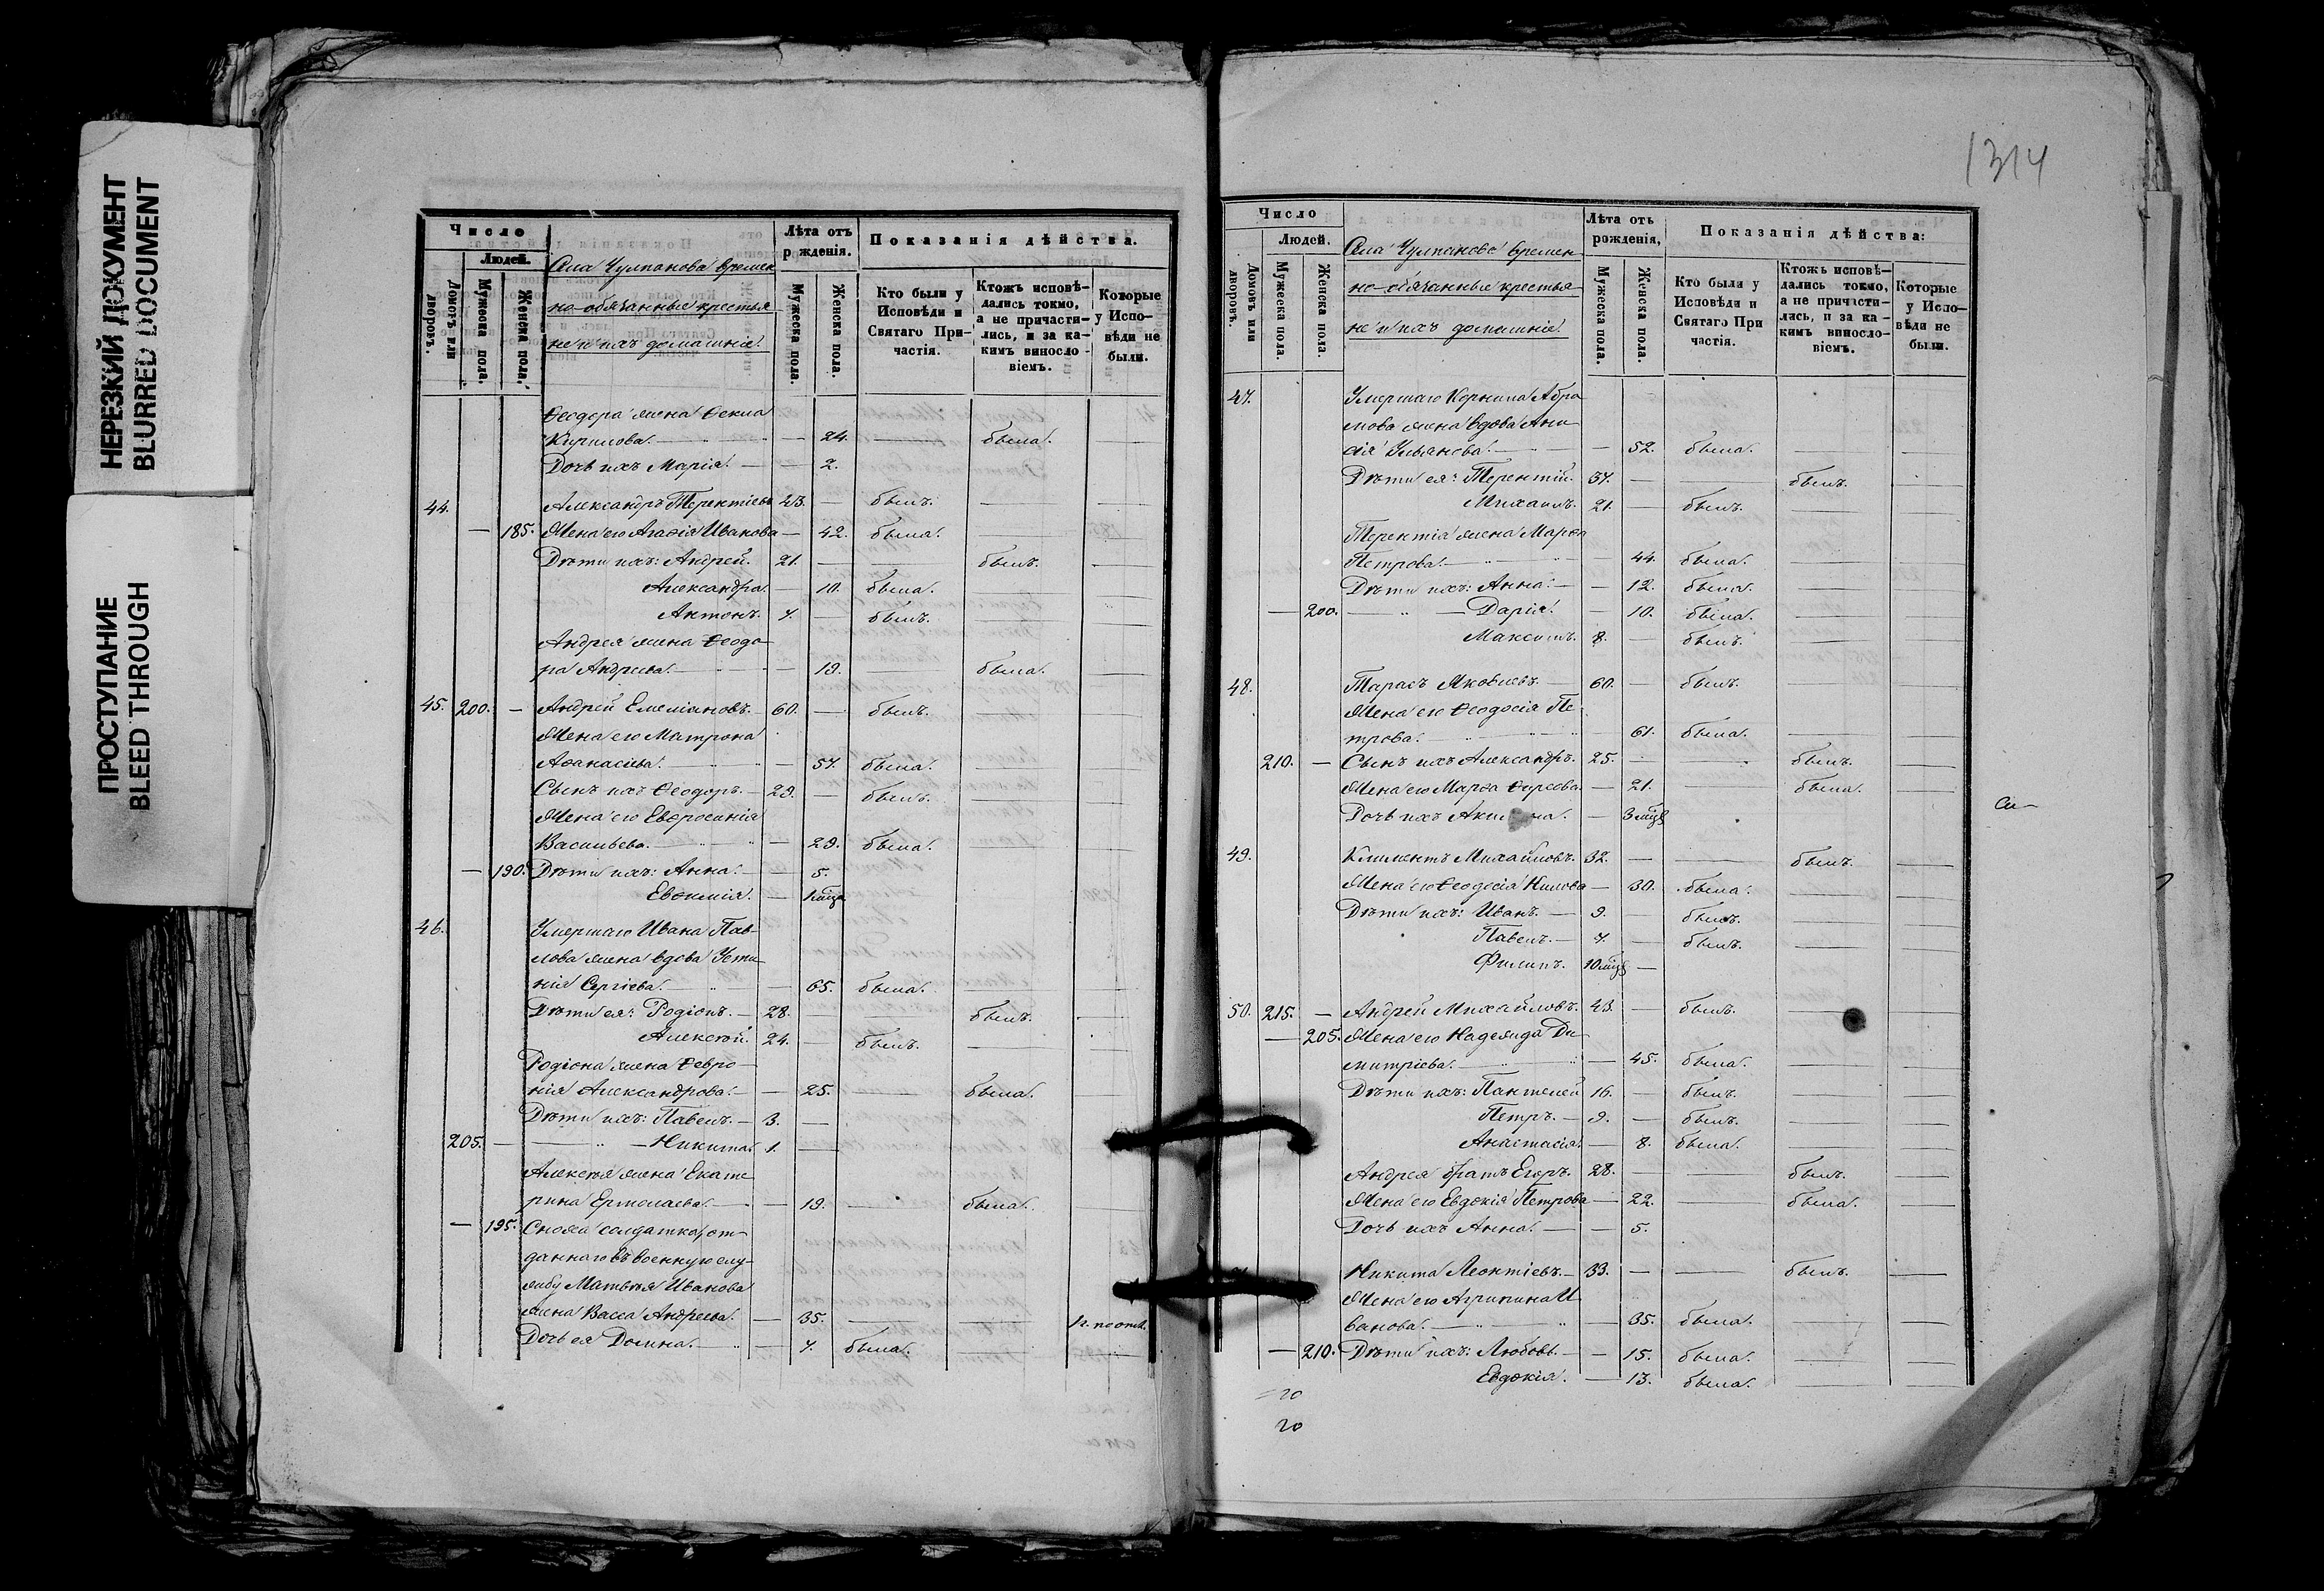 НЕРЕЗКИЙ ДОКУМЕНТ
BLURRED DOCUMENT
ПРОСТУПАНИЕ
BLEED THROUGH
Число
Людей.
Домовъ или дворовъ.
Мужеска пола.
Женска пола.
Села Чулпанова времен
но-обязанные крестья
не и ихъ домашніе.
Лѣта отъ
рожденія.
Мужеска пола.
Женска пола.
Показанія дѣйства.
Кто были у
Исповѣди и
Святаго При-
частія.
Ктожъ исповѣ-
дались токмо,
а не причасти-
лись, и за ка-
кимъ виносло-
віемъ.
Которые
у Испо-
вѣди не
были.
Ѳеодора жена Ѳекла
Кирилова. — — 24. — была. —
Дочь ихъ Марія. — — 2.
44. Александръ Терентіевъ 43. — былъ. — —
— 185. Жена его Агаѳія Иванова — 42. была. — —
Дѣти ихъ: Андрей. 21. — — былъ. —
Александра. — 10. была. — —
Антонъ. 7. — былъ. — —
Андрея жена Ѳеодо
ра Андреева. — — 19. — была. —
45. 200. — Андрей Емеліановъ. 60. — былъ. — —
Жена его Матрона
Аѳанасіева. — — 57. была. — —
Сынъ ихъ Ѳеодоръ. — 29. — былъ. — —
Жена его Евфросинія
Васильева. — — 29. была. — —
— 190. Дѣти ихъ: Анна. — — 5.
Евѳимія. —
46. Умершаго Ивана Пав-
лова жена вдова Усти-
нія Сергіева. — — 65. была. — —
Дѣти ея: Родіонъ. — 28. — — былъ. —
Алексѣй. 24. — былъ. —
Родіона жена Ѳевро-
нія Александрова. — — 25. — была.
Дѣти ихъ: Павелъ. — 3. —
205. — — Никита. 1. —
Алексѣя жена Екате
рина Ермолаева. — — 19. — была.
— 195. Сноха солдатка, от-
даннаго въ военную слу-
жбу Матвѣя Иванова
жена Васса Андреева. — 35. — — н. по отл.
Дочь ея Домна. — — 7. была. — —
1314
Число
Людей.
Домовъ или дворовъ.
Мужеска пола.
Женска пола.
Села Чулпанова времен
но-обязанные крестья
не и ихъ домашніе.
Лѣта отъ
рожденія,
Мужеска пола.
Женска пола.
Показанія дѣйства:
Кто были у
Исповѣди и
Святаго При
частія.
Ктожъ исповѣ-
дались токмо,
а не причасти-
лись, и за ка-
кимъ виносло-
віемъ.
Которые
у Испо-
вѣди не
были.
47. Умершаго Корнила Абра
мова жена вдова Ани
сія Ульянова. — — 52. была. — —
Дѣти ея: Терентій. 37. — — былъ. —
Михаилъ. 21. — былъ. — —
Терентія жена Марѳа
Петрова. — — 44. была. — —
Дѣти ихъ: Анна. — — 12. была. — —
— 200. — — Дарія. — 10. была. — —
Максимъ. 8. — былъ. — —
48. Тарасъ Яковлевъ. — 60. — былъ. — —
Жена его Ѳеодосія Пе
трова. — 61. была. — —
210. — Сынъ ихъ Александръ. 25. — — былъ. —
Жена его Марѳа — 21. — была. —
Дочь ихъ — 3 мцѣ
49. Климентъ Михайловъ. 32. — — былъ. —
Жена его Ѳеодосія Нилова — 30. была. — —
Дѣти ихъ: Иванъ. — 9. — былъ. — —
Павелъ. — 7. — былъ. — —
Филипъ. 10 мцѣ —
50. 215. — Андрей Михайловъ. 43. — былъ. — —
— 205. Жена его Надежда Ди
митріева. — — 45. была. — —
Дѣти ихъ: Пантелей 16. — былъ. — —
Петръ. — 9. — былъ. — —
Анастасія. — 8. была. — —
Андрея братъ Егоръ. 28. — — былъ. —
Жена его Евдокія Петрова — 22. — была. —
Дочь ихъ Анна. — — 5.
Никита Леонтіевъ. — 33. — — былъ. —
Жена его Агрипина И
ванова. — — 35. была. — —
— 210. Дѣти ихъ: Любовь. — — 15. была. — —
Евдокія. — 13. была. — —
20
20